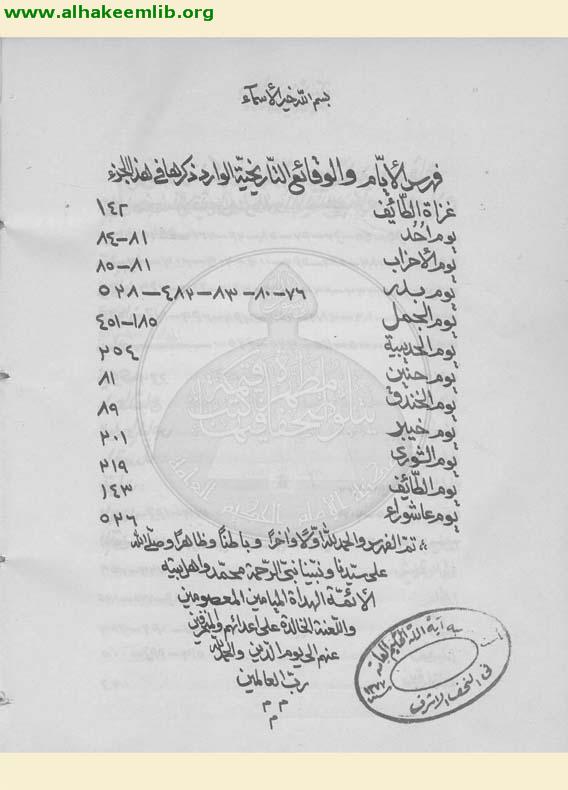 www.alhakeemlib.org
بسم الله خير الأسماء
فهرس الأيّام والوقائع التاريخيّة الوارد ذكرها في هذا الجزء
غزاة الطّائف ١٤٢
يوم أحُد ٨١-٨٤
يوم الأحزاب ٨١-٨٥
يوم بدر ٧٦-٨٠-٨٣-٤٨٢-٥٢٨
يوم الجمل ١٨٥-٤٥١
يوم الحديبية ٢٥٤
يوم حنين ٨١
يوم الخندق ٨٩
يوم خيبر ٢٠١
يوم الشورى ٢١٩
يوم الطّائف ١٤٣
يوم عاشوراء ٥٢٦
تمّ الفهرس والحمد لله أوّلاً وآخراً وباطناً وظاهراً وصلّى الله
على سيّدنا ونبيّنا نبيّ الرّحمة محمّد وأهل بيته
الأئمّة الهداة الميامين المعصومين
واللعنة الخالدة على أعدائهم والمنحرفين
عنهم إلى يوم الدّين والحمد لله
ربّ العالمين
م م
م
آية الله الحكيم العامة
في النجف الاشرف
١٣٧٧